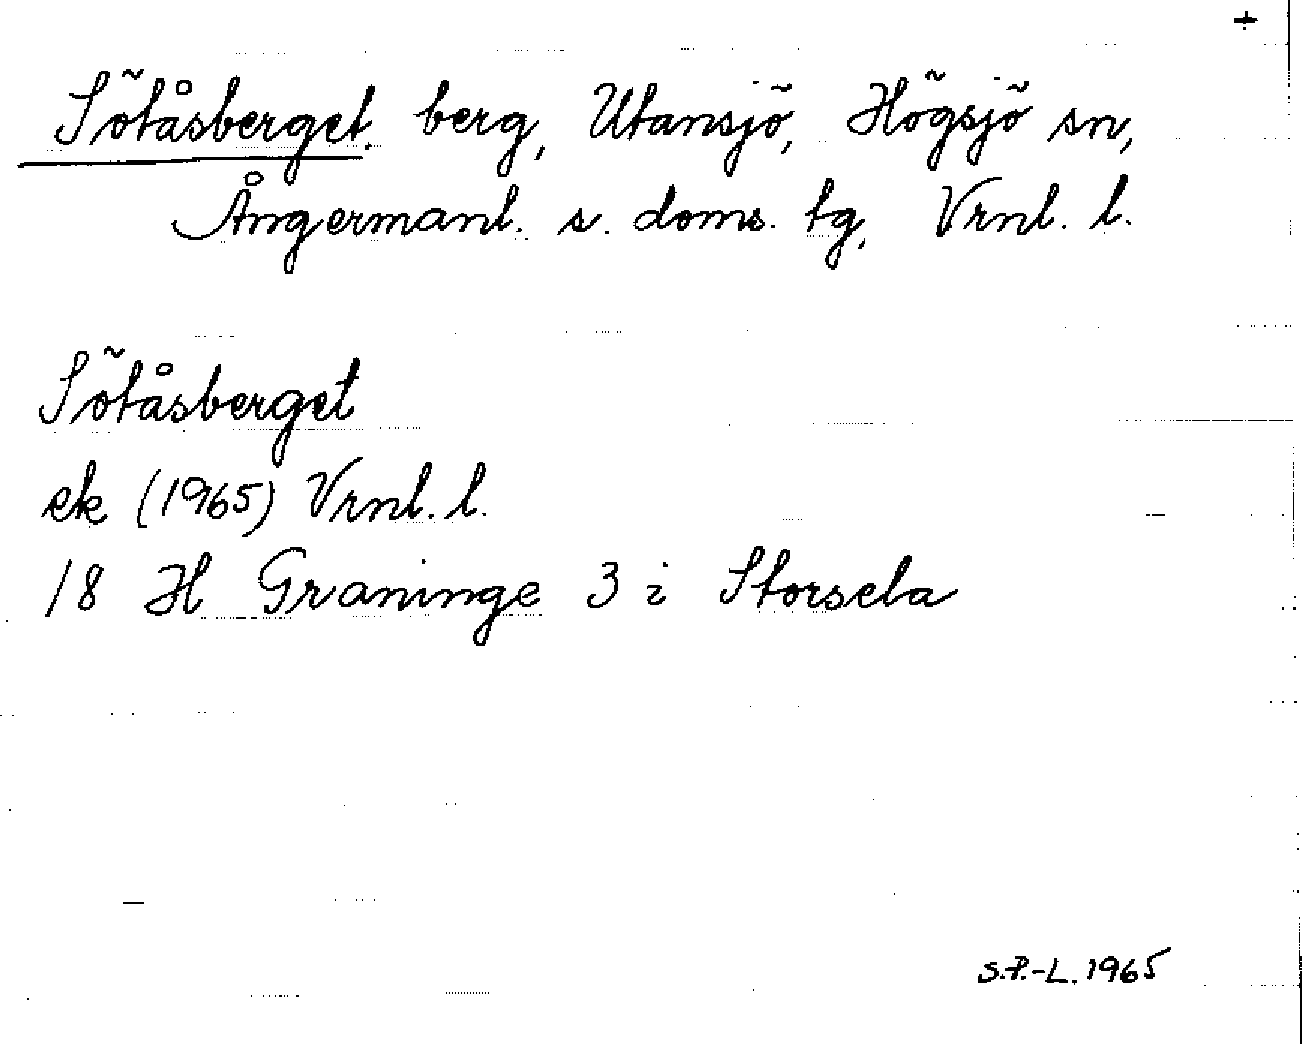 +
Sötåsberget, berg, Utansjö, Högsjö sn,
Ångermanl. s. doms. tg, Vrnl. l.
Sötåsberget
ek (1965) Vrnl. l.
18 H Graninge 3 i Storsela
S.P.-L. 1965